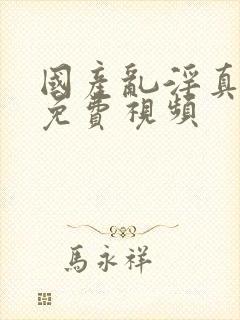 國產亂淫真
免費視頻
馬永祥